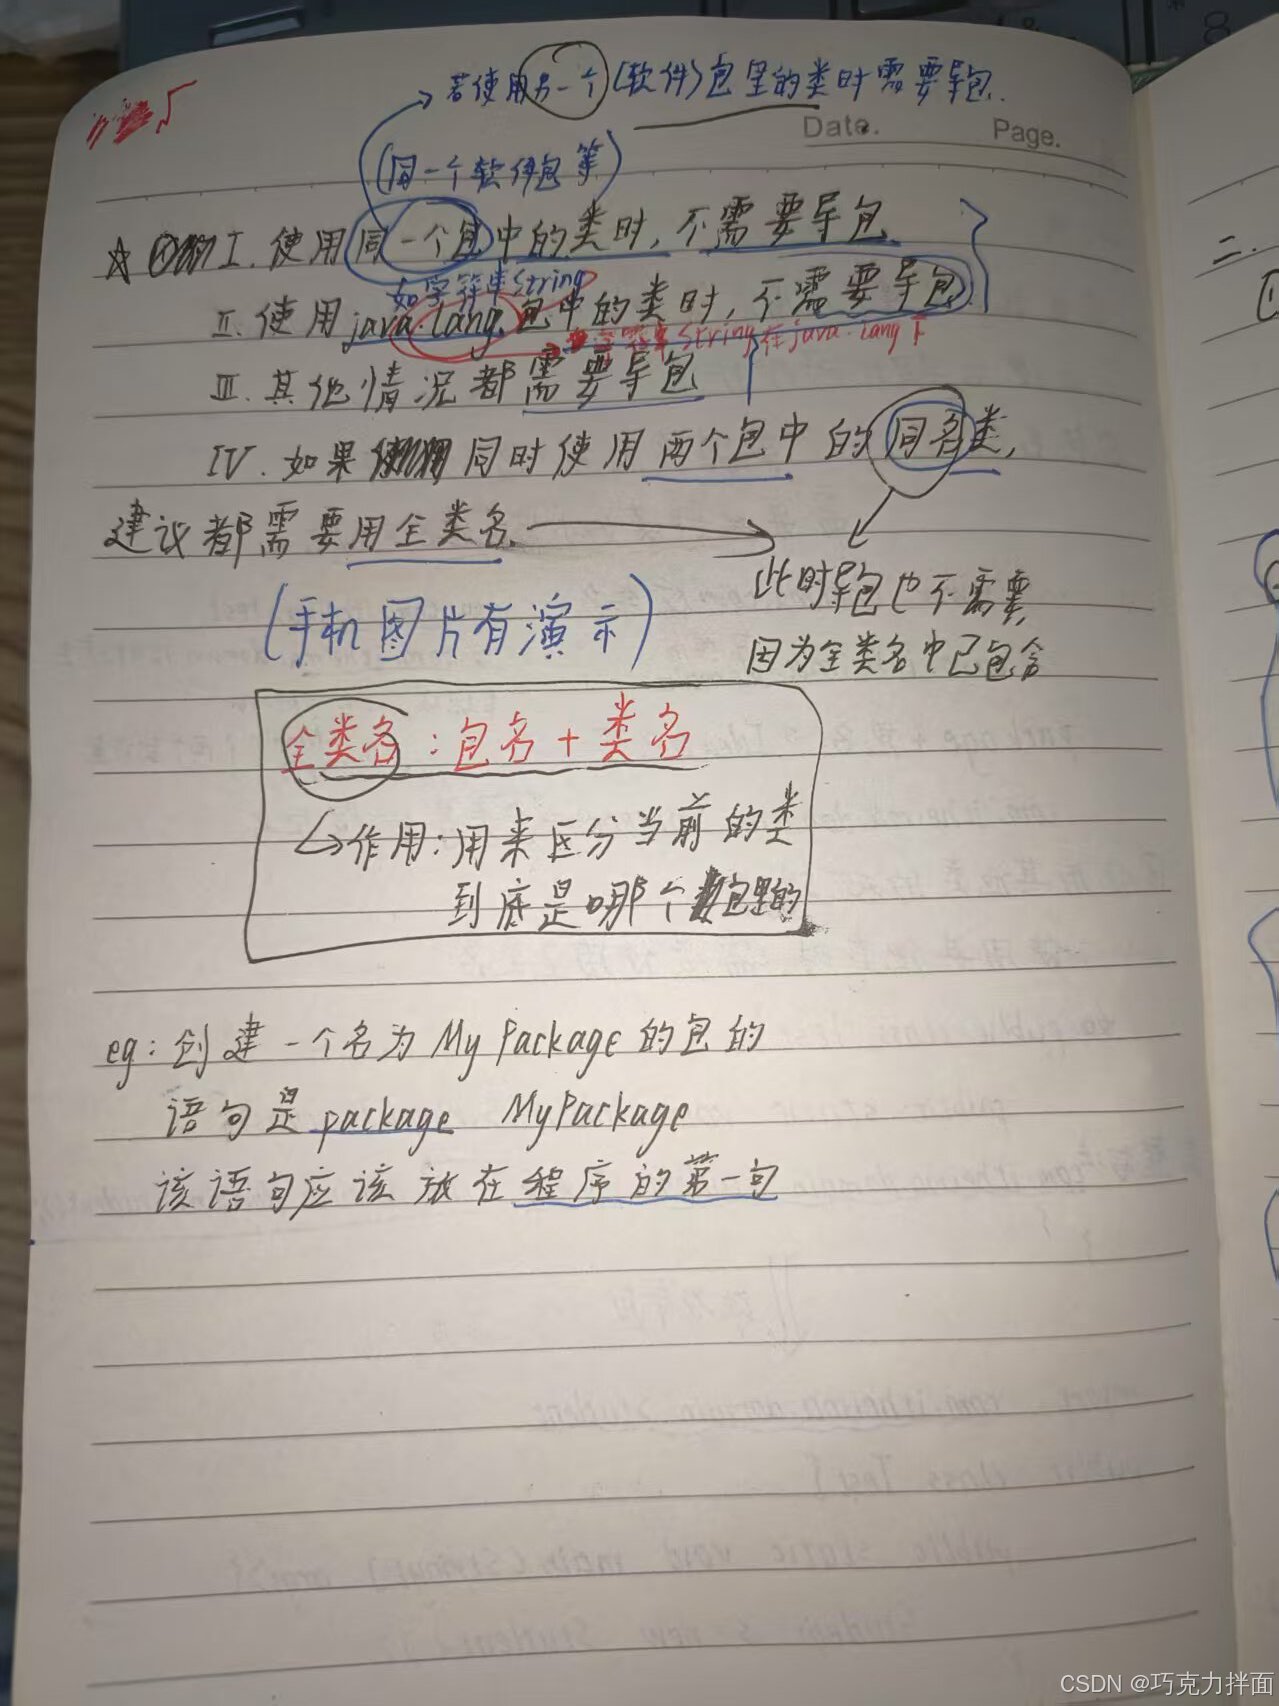 若使用另一个(软件)包里的类时需要导包.
Date.
Page.
(同一个软件包 等)
☆ ① I. 使用同一个包中的类时,不需要导包.
如字符串String
II. 使用java.lang.包中的类时,不需要导包
字符串String在java.lang下
III. 其他情况都需要导包
IV. 如果 同时使用两个包中的同名类,
建议都需要用全类名.
此时导包也不需要,
因为全类名中已包含
(手机图片有演示)
全类名:包名+类名
作用:用来区分当前的类
到底是哪个包里的
eg:创建一个名为 My Package 的包的
语句是 package MyPackage
该语句应该放在程序的第一句
二.
CSDN @巧克力拌面